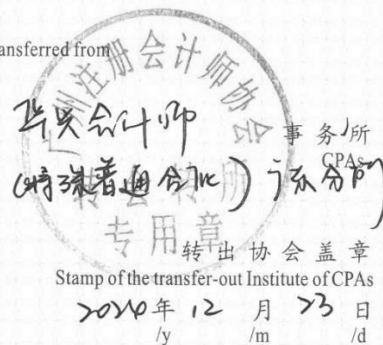 ansferred from
广州注册会计师协会
华兴会计师
事务所
CPAs
(特殊普通合伙)广东分所
转会转所
专用章
转出协会盖章
Stamp of the transfer-out Institute of CPAs
2020年 12 月 23 日
/y /m /d